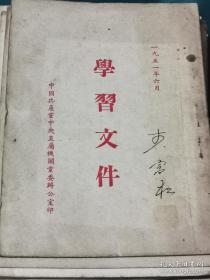 一九五一年六月
學習文件
中國共產黨中央直屬機關黨委辦公室印